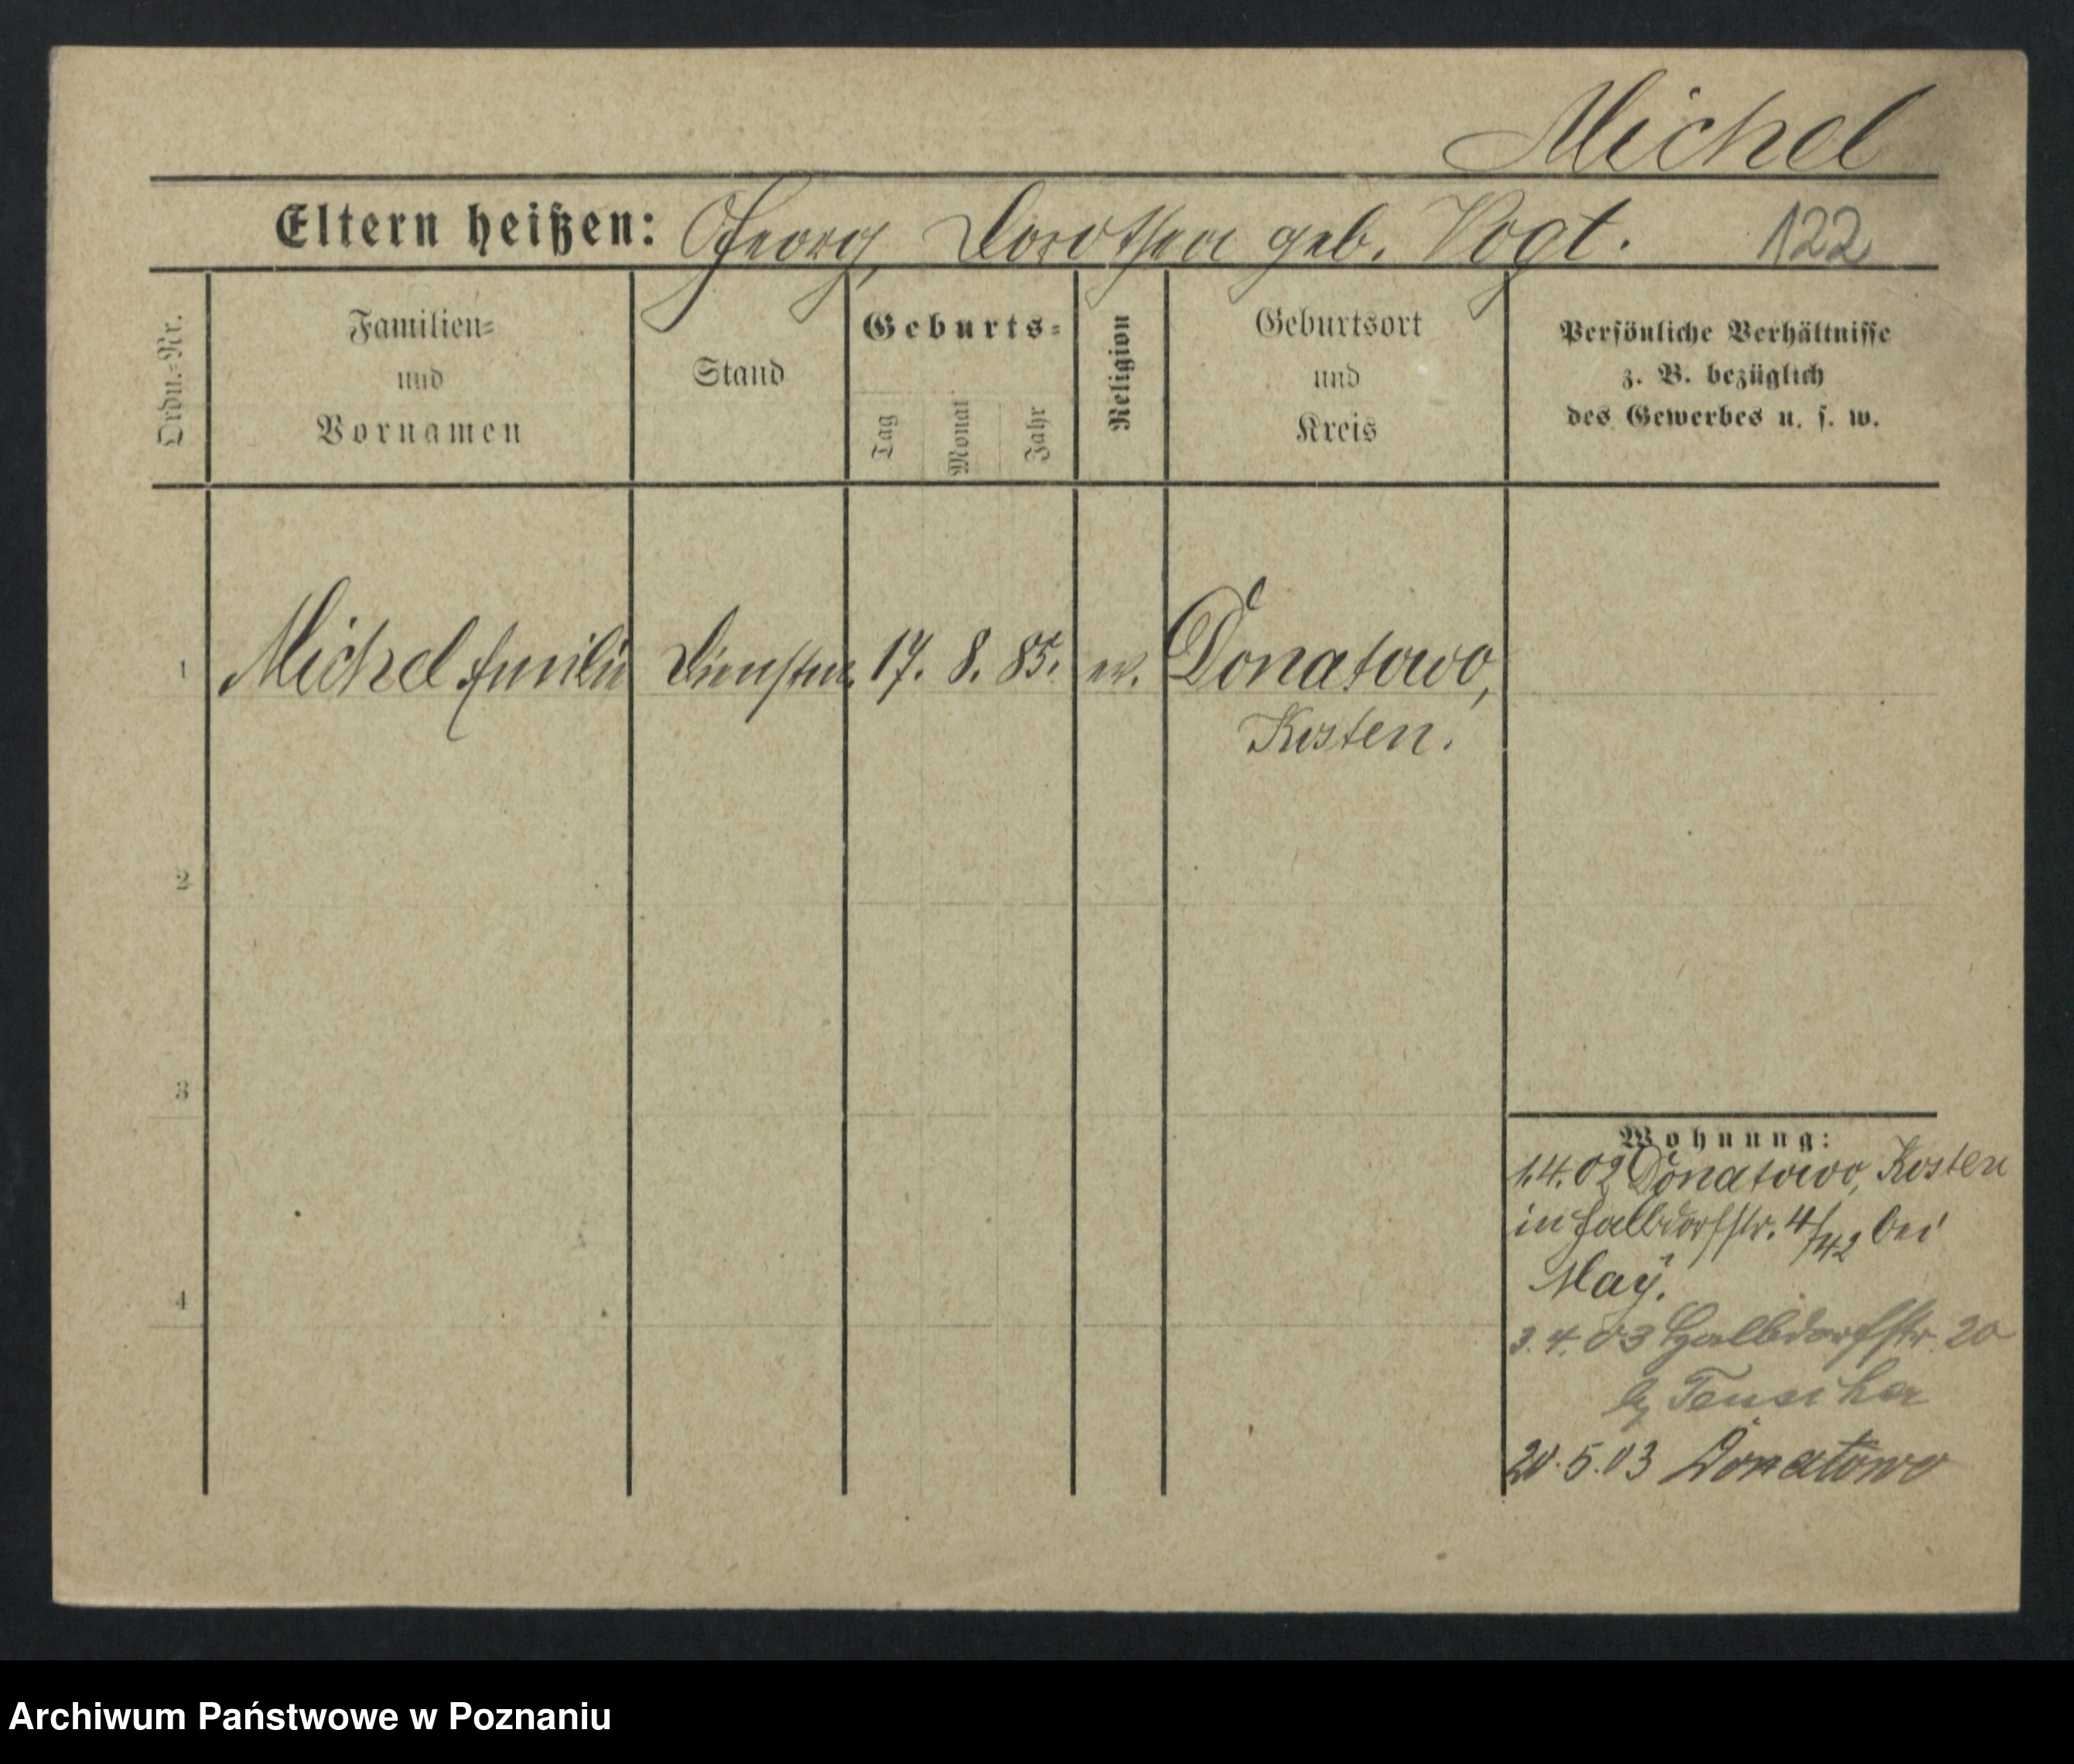 Michel
Eltern heißen: Georg, Dorothea geb. Vogt. 122
Ordn.-Nr.
Familien-
und
Vornamen
Stand
Geburts-
Tag
Monat
Jahr
Religion
Geburtsort
und
Kreis
Persönliche Verhältnisse
z. B. bezüglich
des Gewerbes u. s. w.
1 Michel Emilie Dienstm. 17. 8. 85. ev. Donatowo,
Kosten.
2
3
4
Wohnung:
1.4.02 Donatowo, Kosten
in Halbdorfstr. 4/42 bei
May.
3.4.03 Halbdorfstr. 20
b/
20.5.03 Donatowo
Archiwum Państwowe w Poznaniu